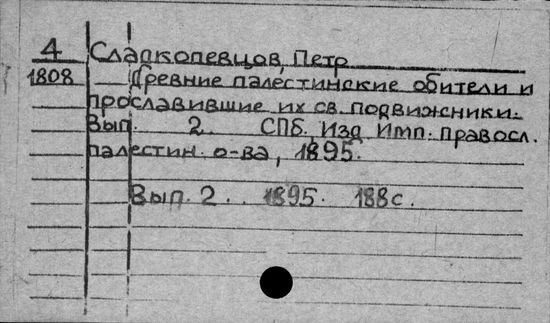 4 Сладкопевцов, Петр
1808 Древние палестинские обители и
прославившие их св. подвижники.
Вып. 2. СПб, Изд Имп. правосл.
палестин. о-ва, 1895.
Вып. 2. . 1895. 188с.